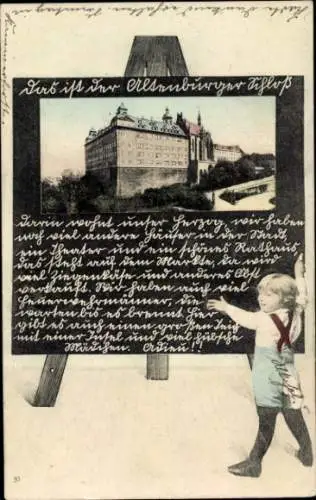 Das ist der Altenburger Schloß
darin wohnt unser Herzog, wir haben
noch viel andere Häuser in der Stadt,
ein Theater und ein schönes Rathaus
das steht auf dem Markte, da wird
viel Ziegenkäse und anderes Obst
verkauft. Wir haben auch viel
Feuerwehrmänner, die
warten bis es brennt. Hier
gibt es auch einen großen Teich
mit einer Insel und viel hübsche
Mädchen. Adieu!!